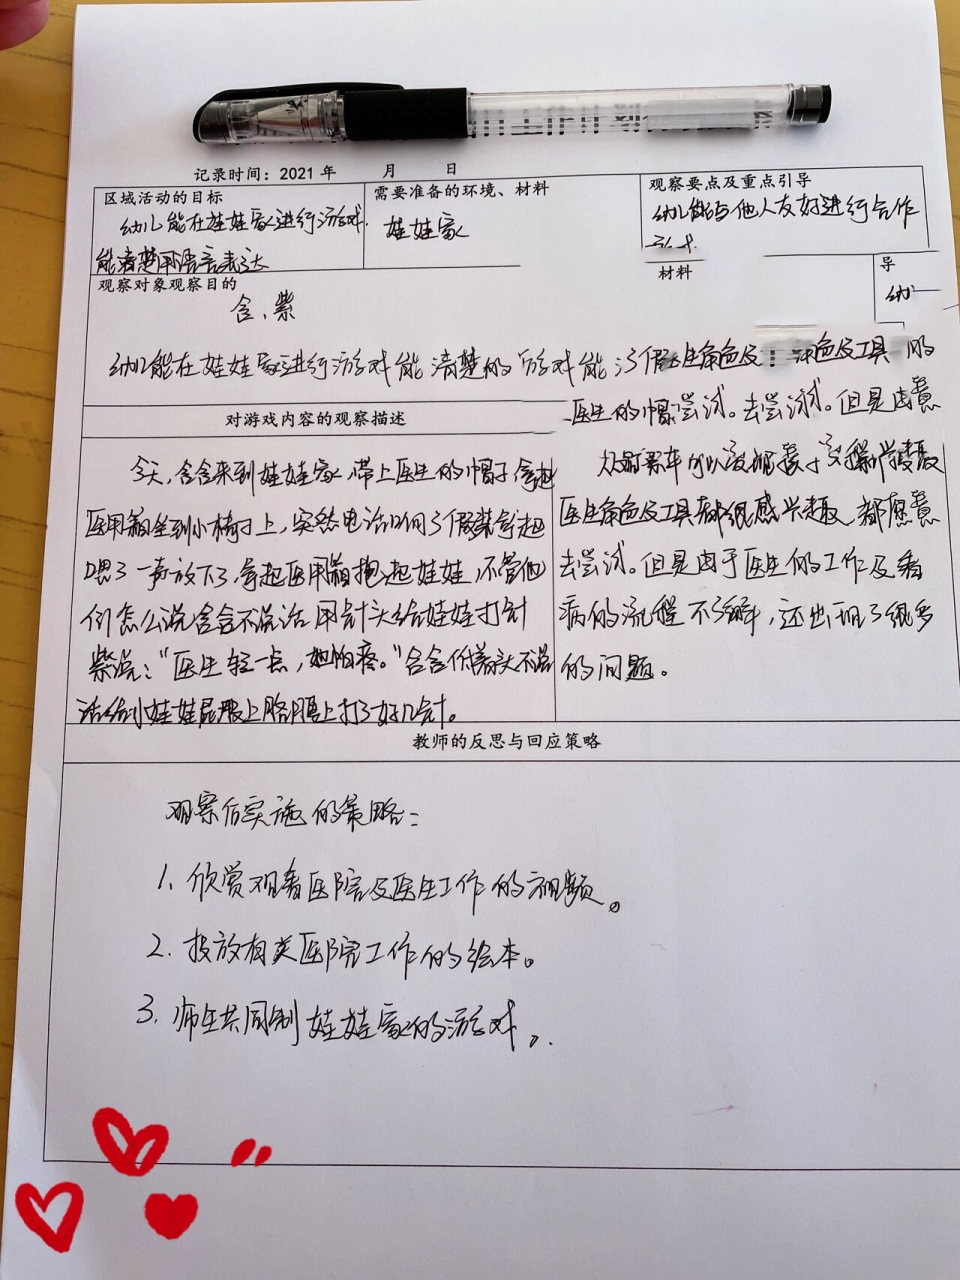 记录时间：2021 年 月 日
区域活动的目标
幼儿能在娃娃家进行游戏
能清楚用语言表达
需要准备的环境、材料
娃娃家
观察要点及重点引导
幼儿能与他人友好进行合作
材料
导
幼
观察对象观察目的
含、紫
幼儿能在娃娃家进行游戏能清楚的游戏能
角色及工具
医生的帽尝试。去尝试。但是由
对游戏内容的观察描述
今天，含含来到娃娃家，带上医生的帽子拿起
医用箱坐到小椅子上，突然电话响了假装拿起
嗯了一声放下了拿起医用箱抱起娃娃，不管他
们怎么说含含不说话用针头给娃娃打针
紫说：“医生轻一点，她怕疼。”含含低着头不说
话给小娃娃屁股上胳膊上打了好几针。
医生角色及工具都很感兴趣，都愿意
去尝试。但是由于医生的工作及看
病的流程不了解，还出现了很多
的问题。
教师的反思与回应策略
观察后实施的策略：
1、欣赏观看医院及医生工作的视频。
2. 投放有关医院工作的绘本。
3. 师生共同制娃娃家的游戏。